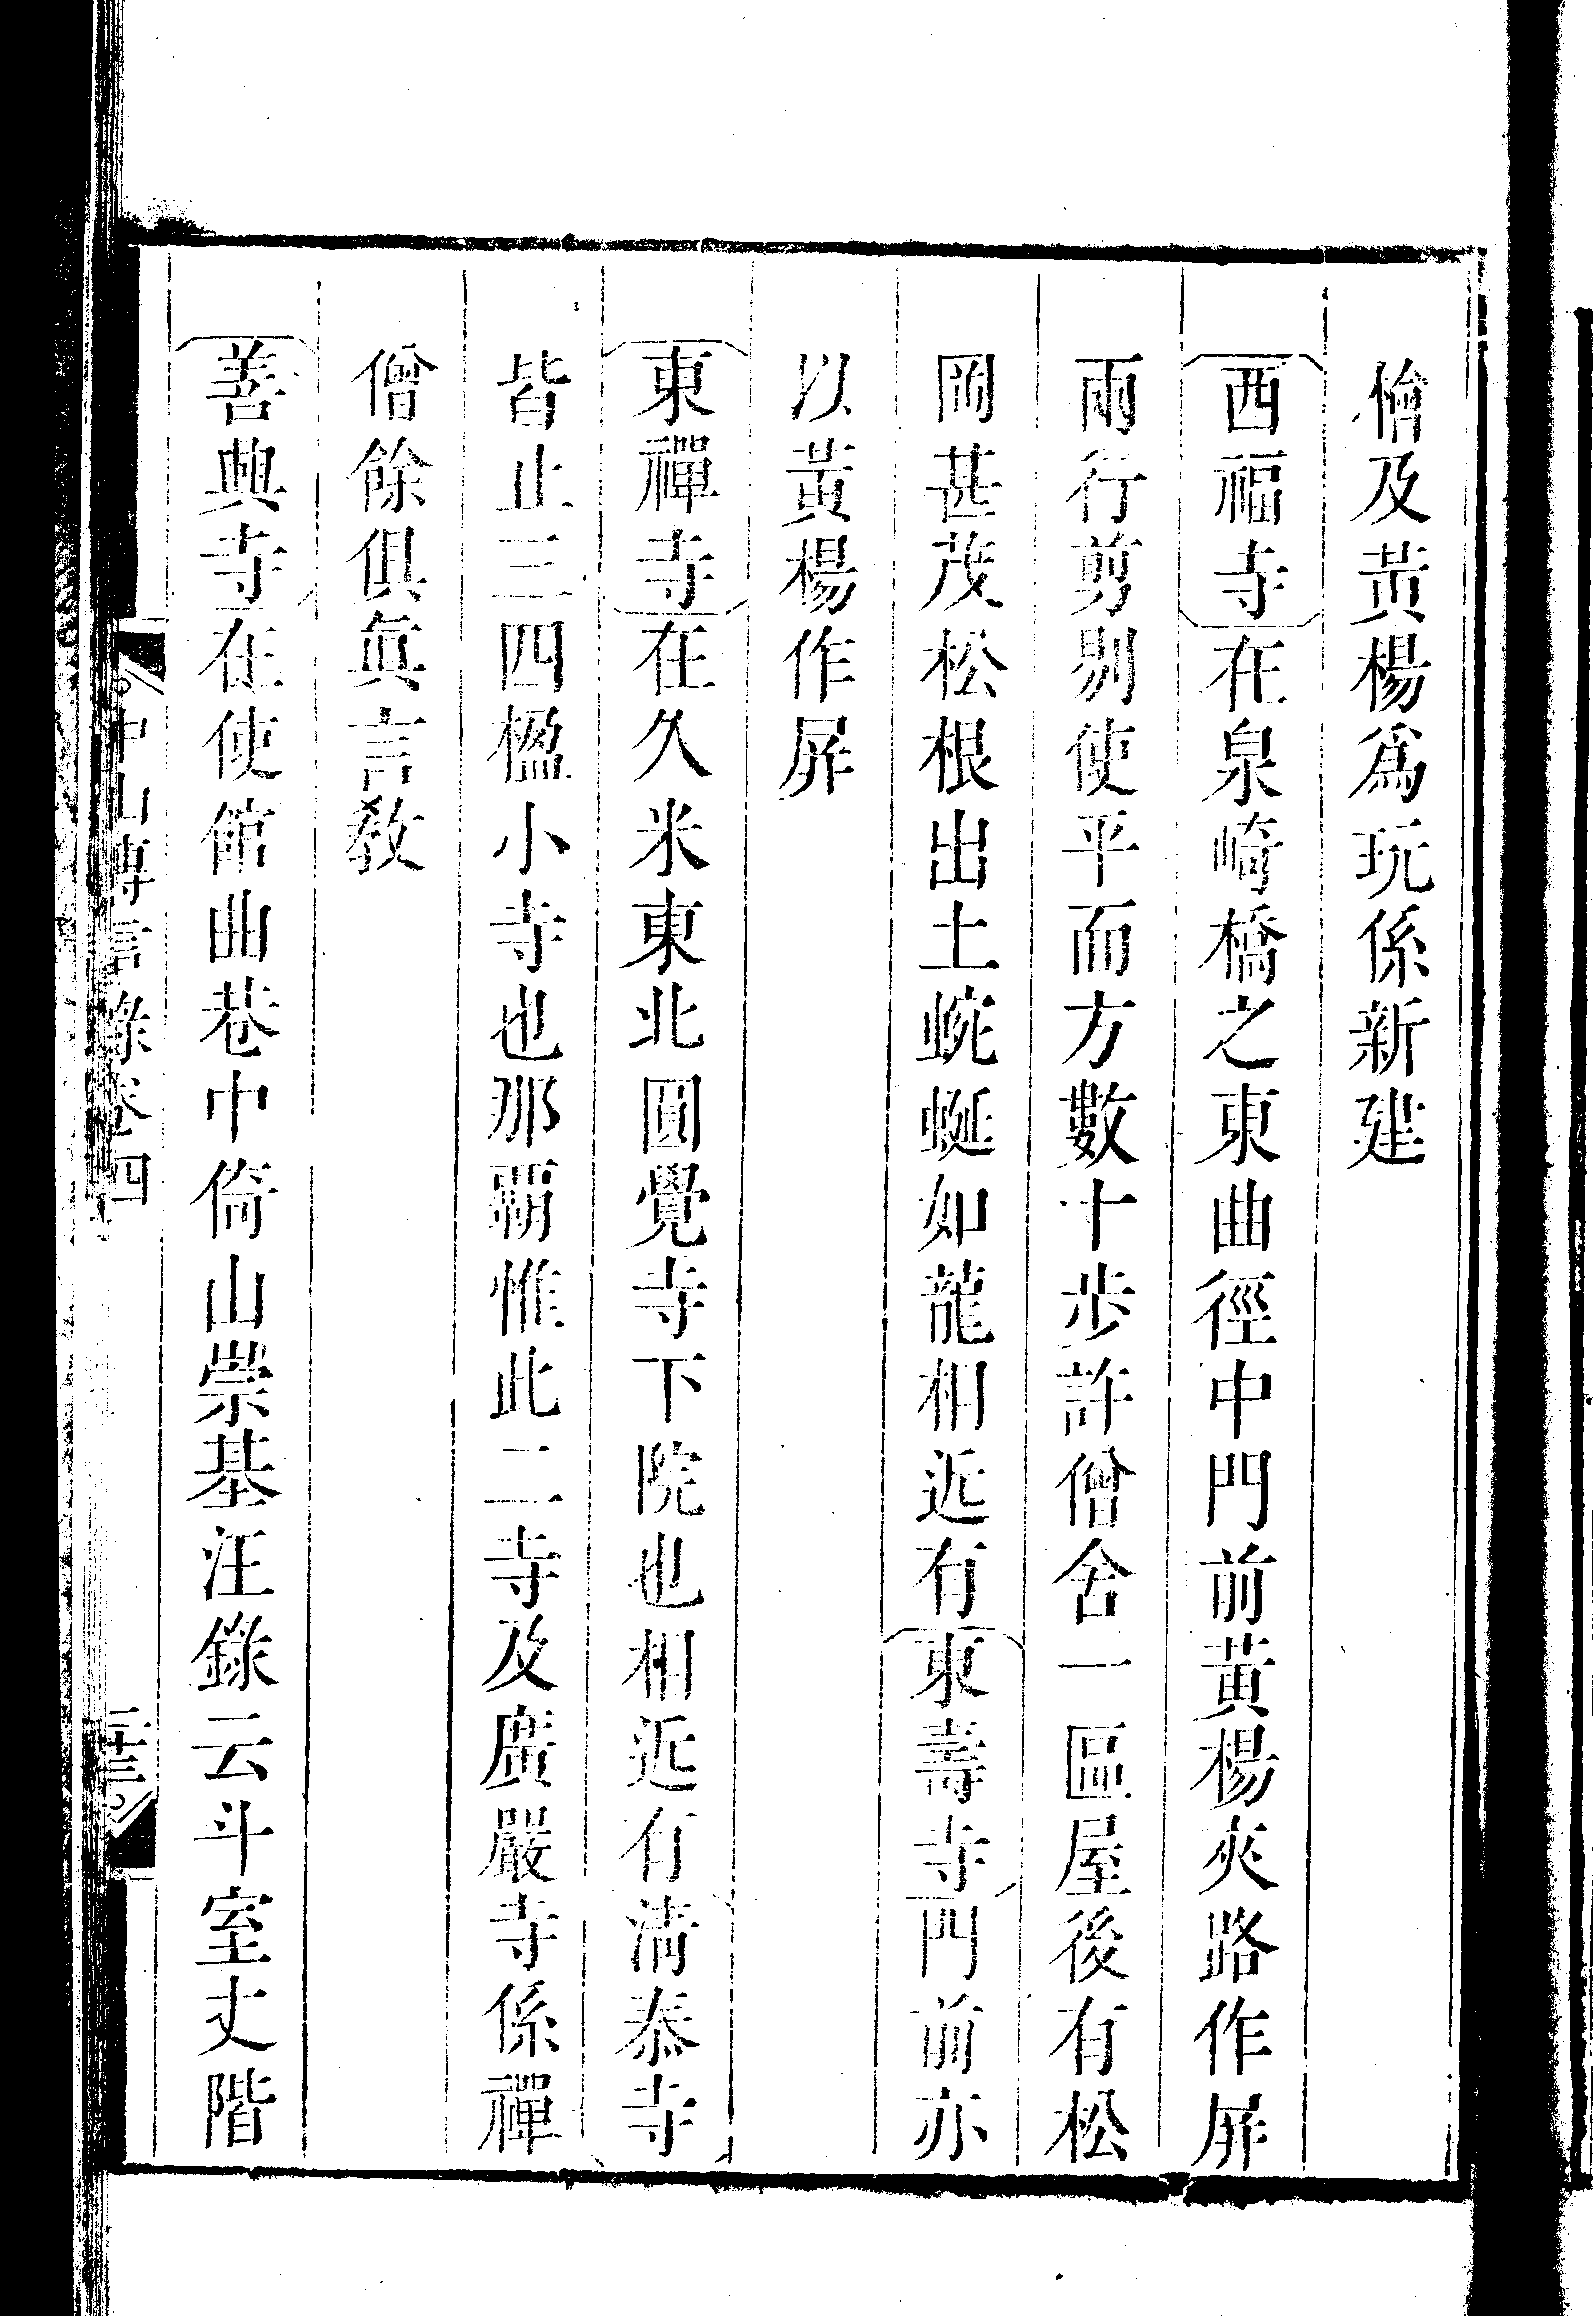 檜及黃楊爲玩係新建
西福寺在泉崎橋之東曲徑中門前黃楊夾路作屏
兩行剪剔使平而方數十步許僧舍一區屋後有松
岡甚茂松根出土蜿蜒如龍相近有東壽寺門前亦
以黃楊作屏
東禪寺在久米東北圓覺寺下院也相近有清泰寺
皆止三四楹小寺也那覇惟此二寺及廣嚴寺係禪
僧餘俱眞言敎
善興寺在使館曲巷中倚山崇基汪錄云斗室丈階
中山傳信錄卷四
二十三